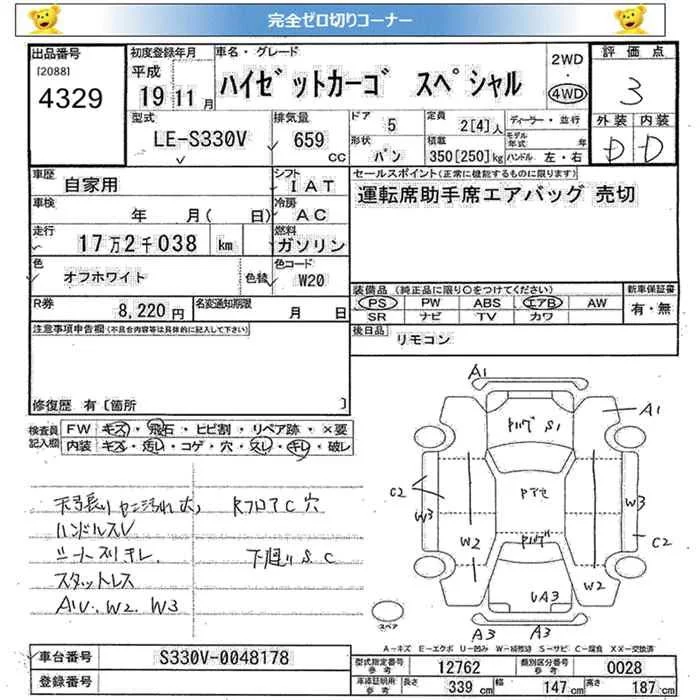 完全ゼロ切りコーナー
出品番号
[2088]
4329
初度登録年月
平成
19 11月
車名・グレード
ハイゼットカーゴ スペシャル
2WD
・
4WD
評価点
3
型式
LE-S330V
排気量
659
CC
ドア
5
定員
2[4]人
ディーラー・並行
形状
バン
積載
350[250]kg
モデル年式 年
ハンドル 左・右
外装 内装
D D
車歴
自家用
シフト
IAT
車検
年 月( 日)
冷房
AC
走行
17万2千038 km
燃料
ガソリン
色
オフホワイト
色替
色コード
W20
R券
8,220円
名変通知期限
月 日
セールスポイント(正常に機能するものに限ります)
運転席助手席エアバッグ 売切
装備品(純正品に限り○をつけてください)
新車保証書
PS PW ABS エアB AW
SR ナビ TV カワ
有・無
後日品
リモコン
注意事項申告欄(不具合内容等は具体的に記入して下さい)
修復歴 有〔箇所 〕
検査員記入欄
FW キズ・飛石・ヒビ割・リペア跡・×要
内装 キズ・汚レ・コゲ・穴・スレ・キレ・破レ
天張り ヤニ汚れ大, RフロアC穴
ハンドルスレ
シートスリキレ. 下廻りS.C
スタットレス
A1U. W2. W3
A1
A1
S1
C2
W3
W2
W3
C2
W2
UA3
A3 A3
スペア
A-キズ E-エクボ U-凹み W-補修跡 S-サビ C-腐食 XX-交換済
車台番号
S330V-0048178
登録番号
型式指定番号
参考
12762
類別区分番号
参考
0028
車庫証明用
参考
長さ
339cm
幅
147cm
高さ
187cm